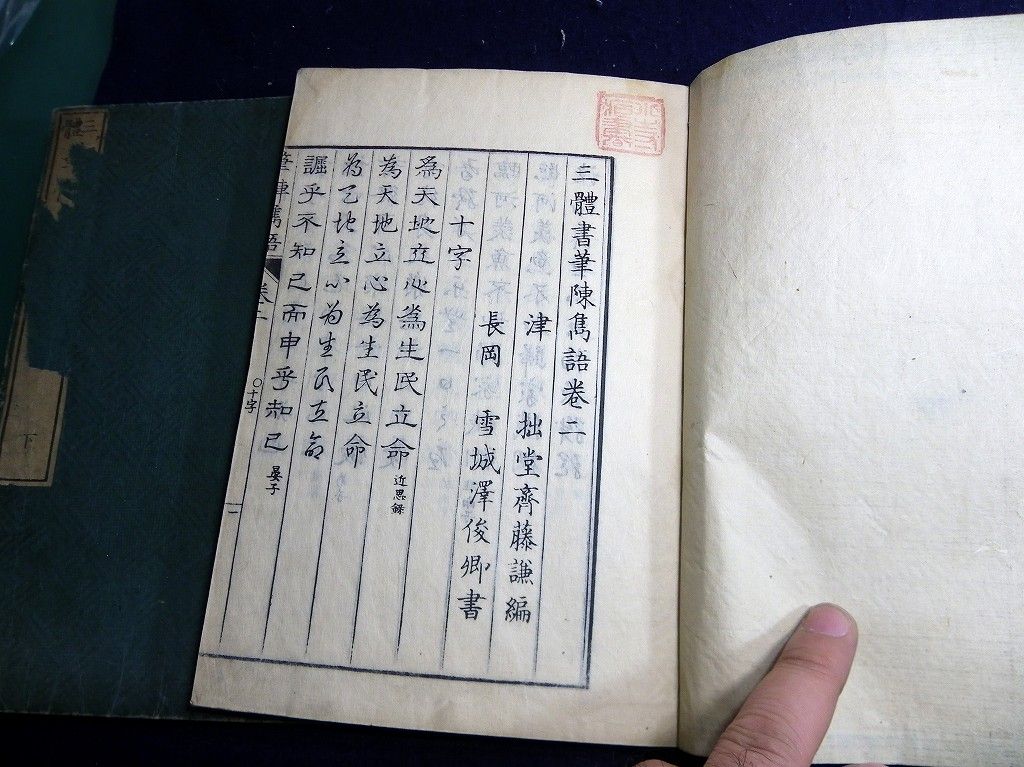 三體書筆陳雋語卷二
津 拙堂齊藤謙編
長岡 雪城澤俊卿書
十字
爲天地立心爲生民立命 近思録
為天地立心為生民立命
為天地立心為生民立命
詘乎不知己而申乎知己 晏子
筆陣雋語 卷二 ○十字 一
三體
下